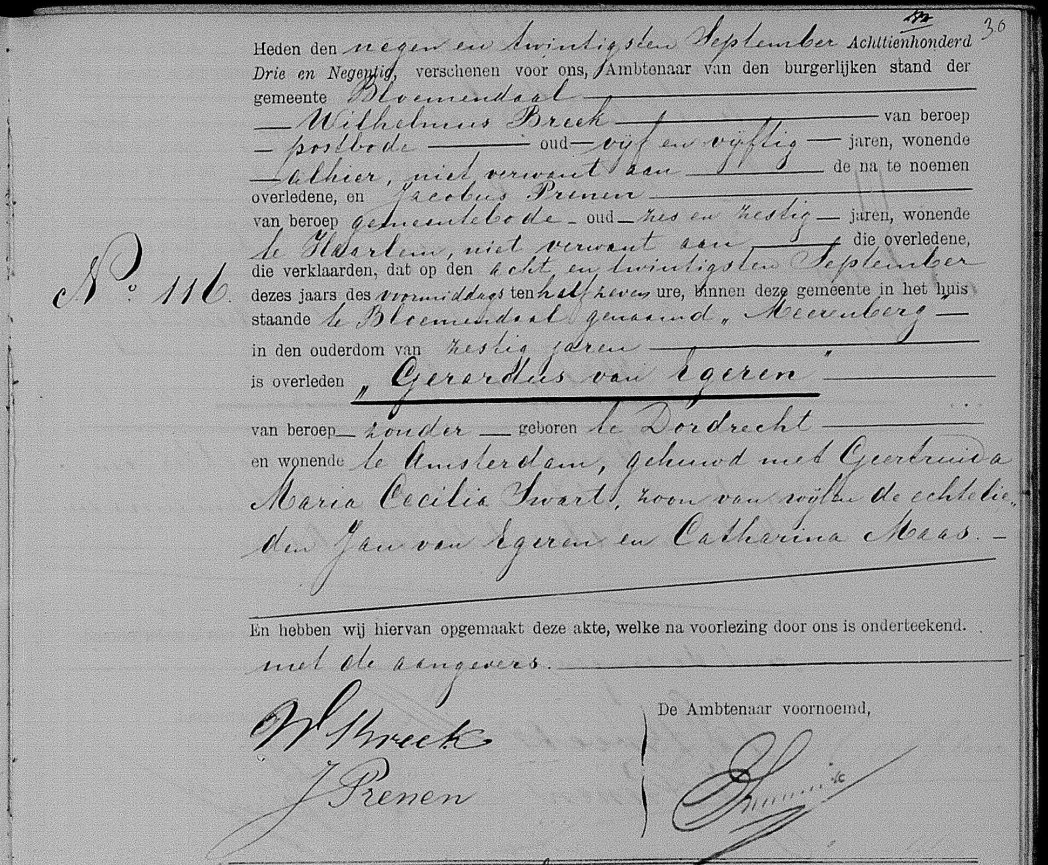 30
Heden den negen en twintigsten September Achttienhonderd
Drie en Negentig, verschenen voor ons, Ambtenaar van den burgerlijken stand der
gemeente Bloemendaal
Wilhelmus Breek van beroep
postbode oud vijf en vijftig jaren, wonende
alhier, niet verwant aan de na te noemen
overledene, en Jacobus Prenen
van beroep gemeentebode oud zes en zestig jaren, wonende
te Haarlem, niet verwant aan die overledene,
die verklaarden, dat op den acht en twintigsten September
No. 116.
dezes jaars des voormiddags ten half zeven ure, binnen deze gemeente in het huis
staande te Bloemendaal genaamd „Meerenberg"
in den ouderdom van zestig jaren
is overleden „Gerardus van Egeren"
van beroep zonder geboren te Dordrecht
en wonende te Amsterdam, gehuwd met Geertruida
Maria Cecilia Swart, zoon van wijlen de echtelie„
den Jan van Egeren en Catharina Maas.
En hebben wij hiervan opgemaakt deze akte, welke na voorlezing door ons is onderteekend.
met de aangevers.
De Ambtenaar voornoemd,
W Breek
J Prenen